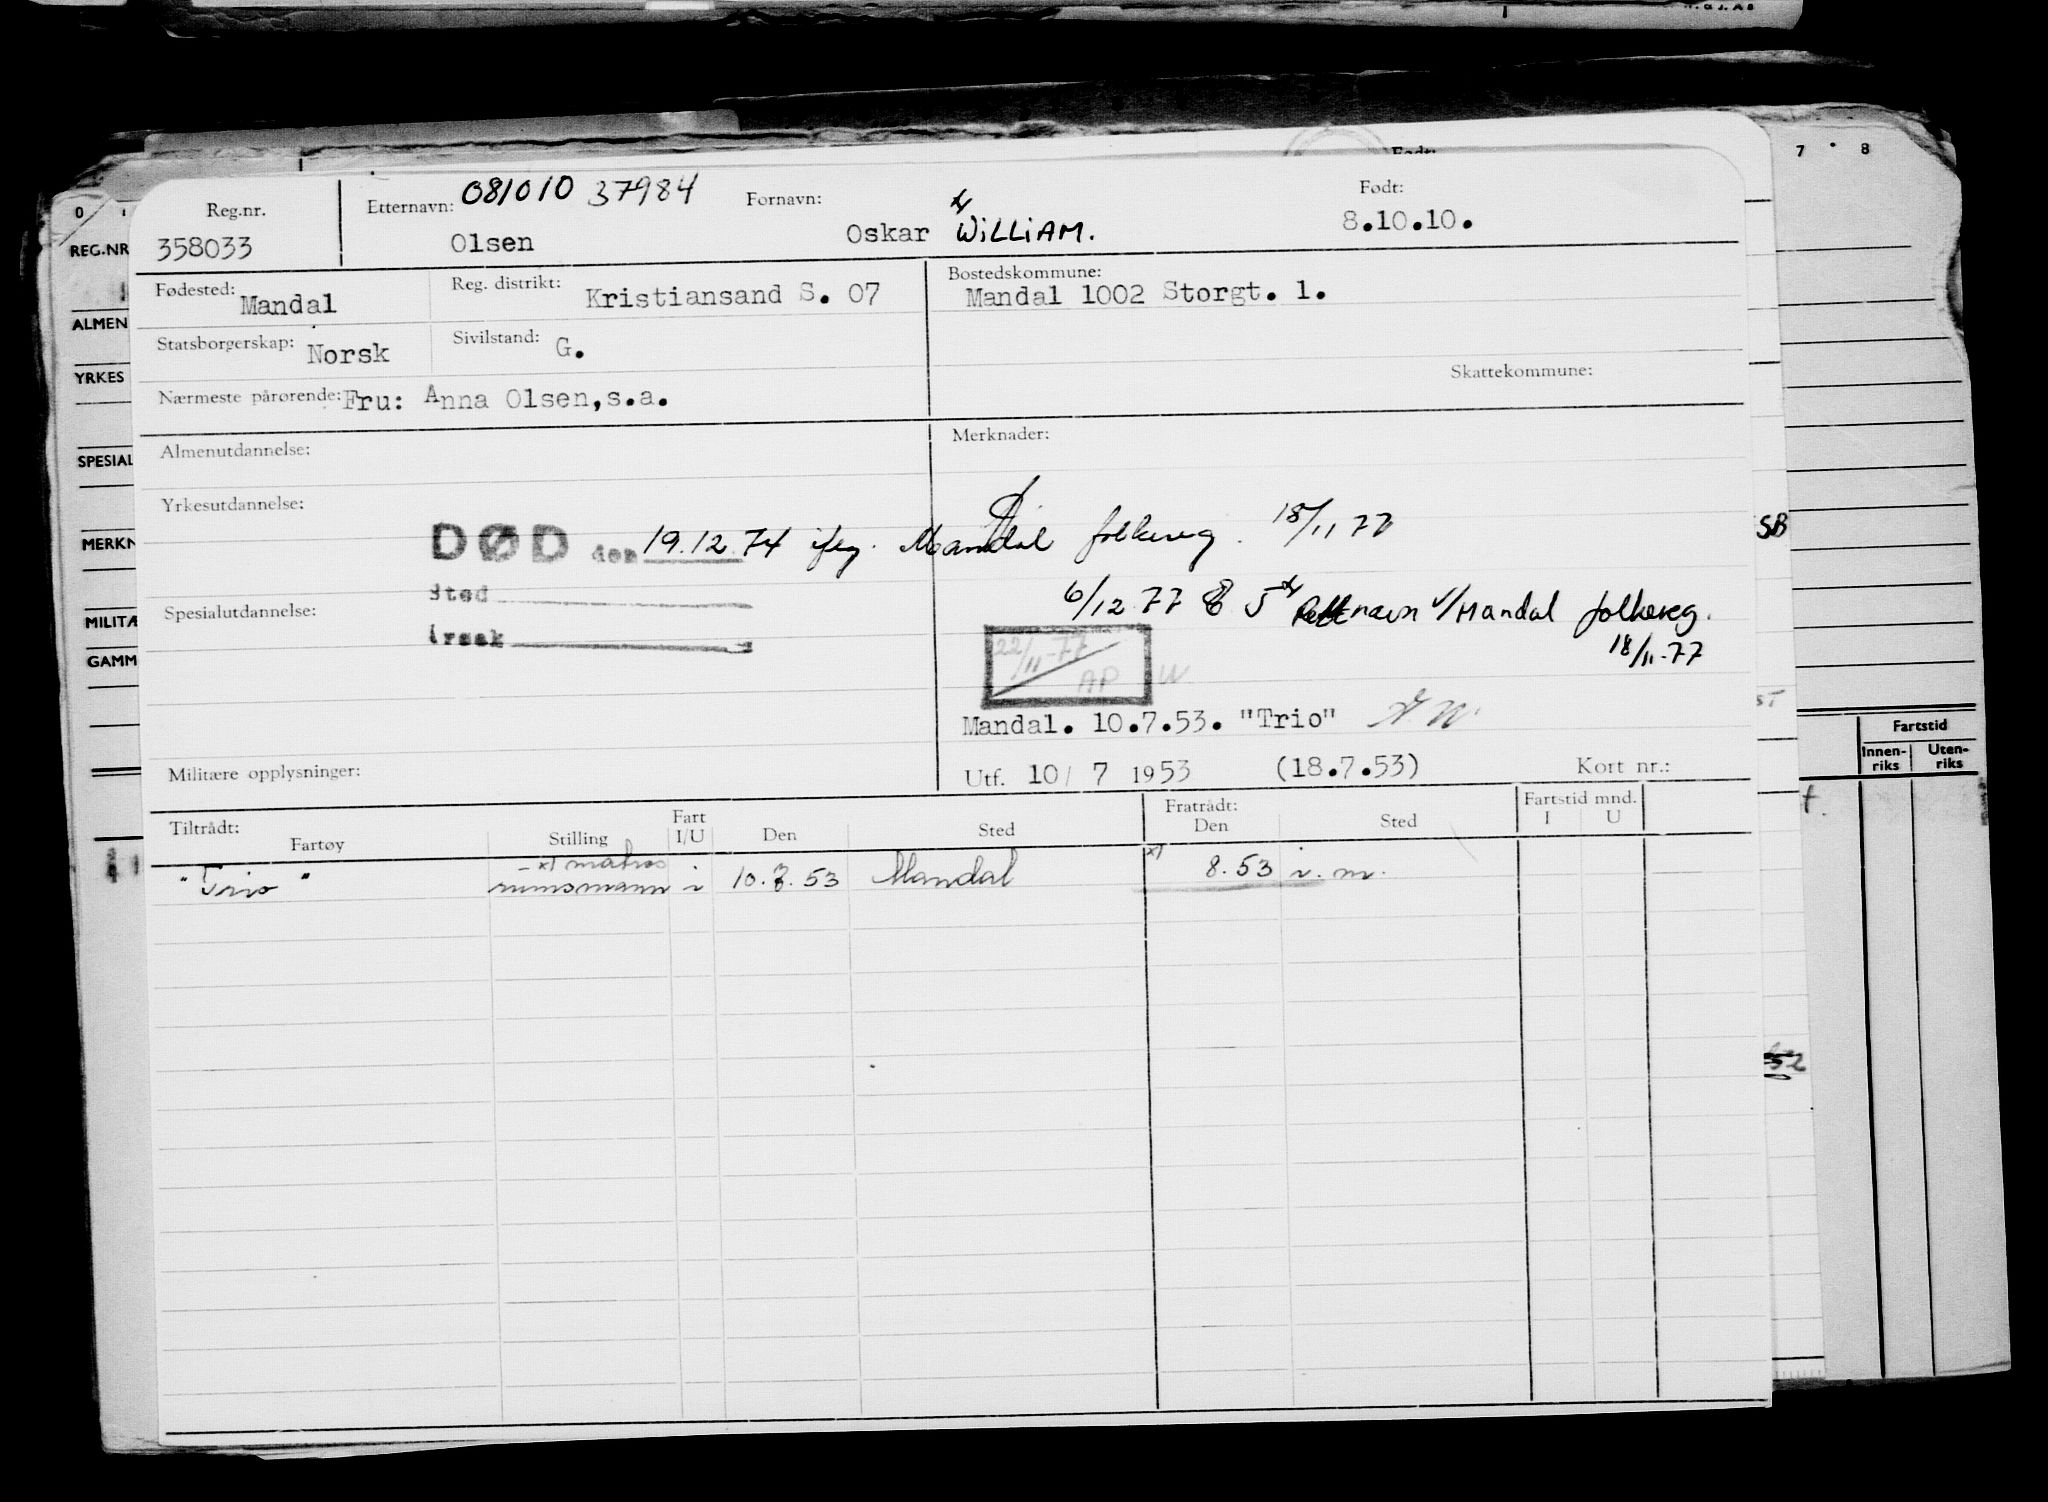 Født:
7 8
0
REG.NR
ALMEN
YRKES
SPESIAL
MERKN
MILITÆ
GAMM
SB
Fartstid
Innen-riks Uten-riks
Reg.nr. 358033
Etternavn: 081010 37984
Olsen
Fornavn: Oskar x) WiLLiAM.
Født: 8.10.10.
Fødested: Mandal
Reg. distrikt: Kristiansand S. 07
Bostedskommune: Mandal 1002 Storgt. 1.
Statsborgerskap: Norsk
Sivilstand: G.
Skattekommune:
Nærmeste pårørende: Fru: Anna Olsen,s.a.
Almenutdannelse:
Merknader:
Yrkesutdannelse:
DØD den 19.12.74 iføg. Mandal folkereg. 18/11 77
Sted
Årsak
6/12 77 x) Rett navn v/Mandal folkereg.
18/11-77
Spesialutdannelse:
22/11-77
AP
Mandal. 10.7.53. "Trio"
Militære opplysninger:
Utf. 10/ 7 1953 (18.7.53) Kort nr.:
Tiltrådt:
Fartøy Stilling Fart I/U Den Sted
Fratrådt: Den Sted
Fartstid mnd. I U
- x) matros
"Trio" rumsmann i 10.7.53 Mandal x) 8.53 i.m.